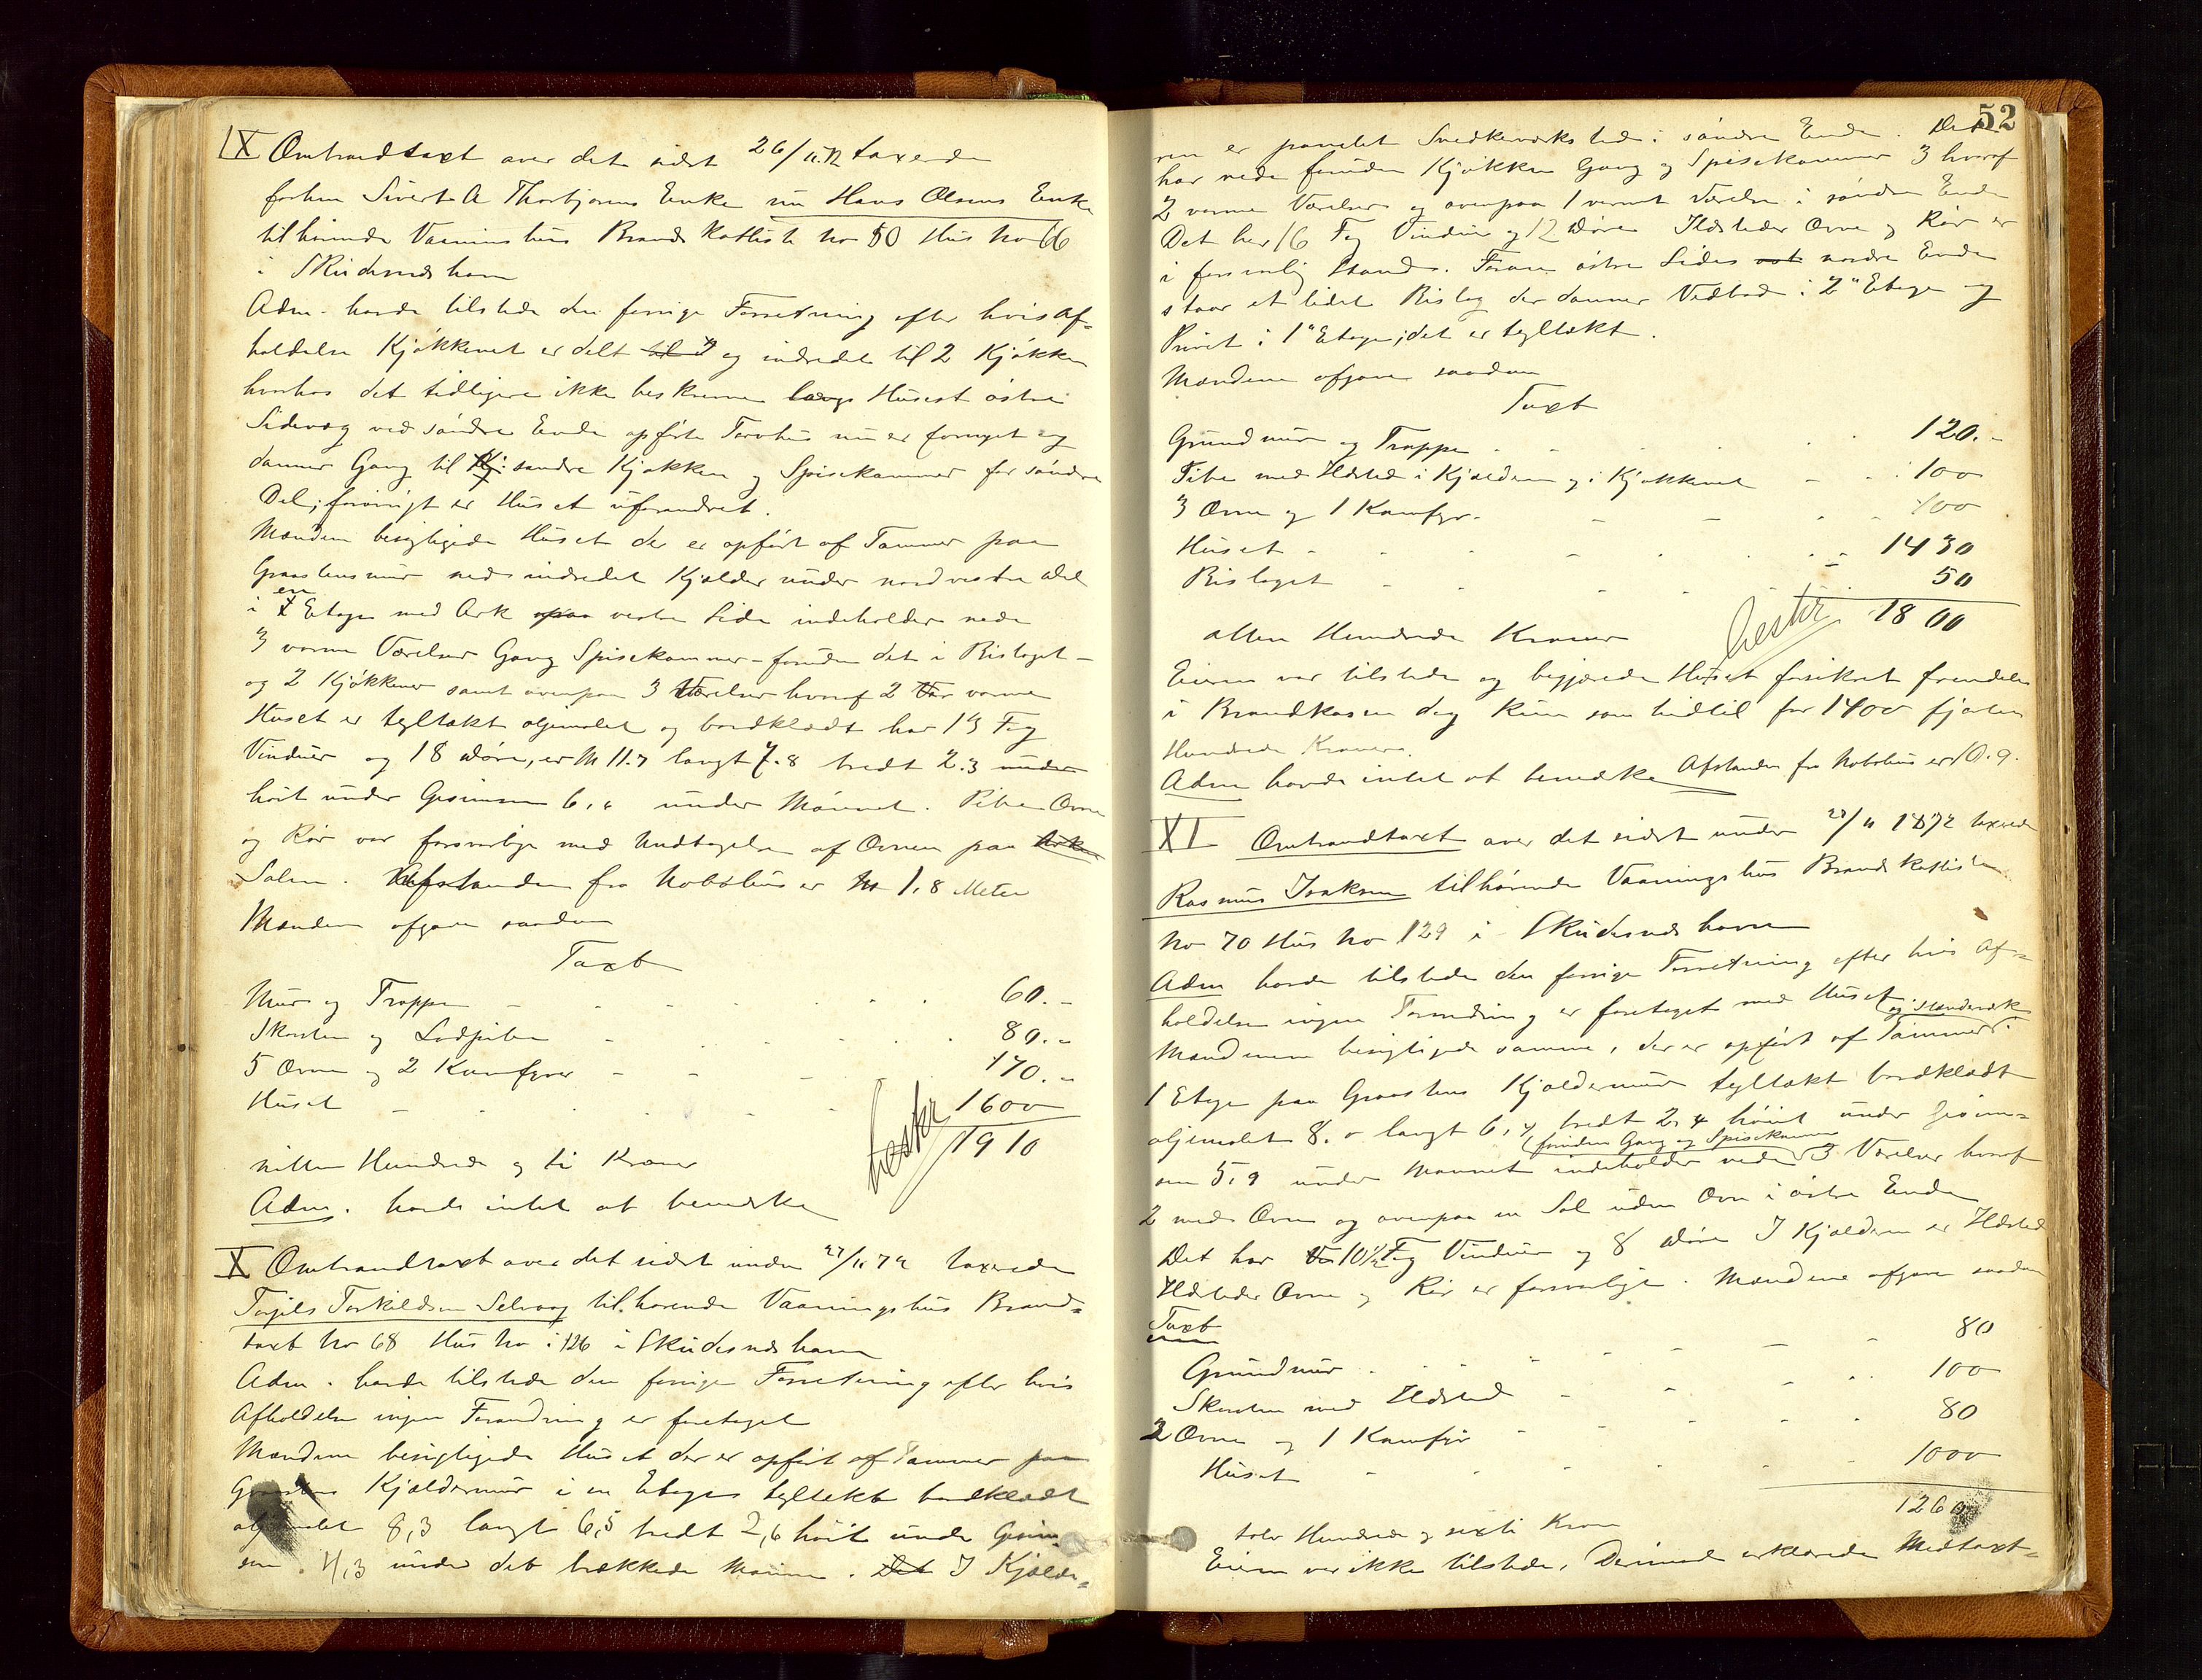 IX Ombrandtaxt over det sidst 26/11.72 taxerede
forhen Sivert A Thorbjørns Enke nu Hans Olsens Enke
tilhørende Vaaningshus Brandkatliste No 50 Hus No 66
i Skudesneshavn
Adm. havde tilstede den forrige Forretning efter hvis Af-
holdelse Kjøkkenet er delt til 2 og indredet til 2 Kjøkken
hvorhos det tidligere ikke beskrevne langs Husets østre
Sidevæg ved søndre Ende opførte Torvhus nu er fornyet og
danner Gang til Kj: søndre Kjøkken og Spisekammer for søndre
Del; forøvrigt er Huset uforandret.
Mændene besigtigede Huset der er opført af Tømmer paa
Graastensmur med indredet Kjælder under nordvestre Del
i en Etage med Ark paa vestre Side indeholder nede
3 varme Værelser Gang Spisekammer - foruden det i Bislaget -
og 2 Kjøkkener samt ovenpaa 3 Værelser hvoraf 2 Vær varme
Huset er tegltækt oljemalet og bordklædt har 19 Fag
Vinduer og 18 Døre, er M 11.7 langt 7.8 bredt 2.3 under
høit under Gesimsen 6," under Mønnet. Piben Ovne
og Rør var forsvarlige med Undtagelse af Ovnen paa Arken
Salen. Afstanden fra Nabohus er M 1,8 Meter
Mændene afgave saadan
Taxt
Mur og Trappe - 60.-
Skorsten og Lodpibe - 80.-
5 Ovne og 2 Komfyrer - 170.-
Huset - 1600
bestkr 1910
nitten Hundrede og ti Kroner
Adm. havde intet at bemærke
X Ombrandtaxt over det sidst under 27/11 72 taxerede
Torgils Torkildsen Selvaag tilhørende Vaaningshus Brand-
taxt No 68 Hus No: 126 i Skudesneshavn
Adm. havde tilstede den forrige Forretning efter hvis
Afholdelse ingen Forandring er foretaget
Mændene besigtigede Huset der er opført af Tømmer paa
Graastens Kjældermur i en Etage tegltækt bordklædt
oljemalet 8,3 langt 6,5 bredt 2,6 høit under Gesim-
sen 4,3 under det brækkede Mønne. Det I Kjælde-
52
ren er panelet Snedkerværksted i søndre Ende. Det
har nede foruden Kjøkken Gang og Spisekammer 3 hvoraf
2 varme Værelser og ovenpaa 1 varmt Værelse i søndre Ende
Det har 16 Fag Vinduer og 12 Døre Ildsteder Ovne og Rør er
i forsvarlig Stand. Foran østre Sides nordre Ende
staar et lidet Bislag der danner Vedbod i 2" Etage og
Privet i 1" Etage; det er tegltækt.
Mændene afgave saadan
Taxt
Grundmur og Trappe 120.-
Pibe med Ildsted i Kjælderen og i Kjøkkenet - 100
3 Ovne og 1 Komfyr. - 100
Huset - 1430
Bislaget - 50
bestkr. 1800
atten Hundrede Kroner
Eieren var tilstede og begjærede Huset forsikret fremdeles
i Brandkassen dog kun som hidtil for 1400 fjorten
Hundrede Kroner.
Adm havde intet at bemærke Afstanden fra Nabohus er 10.9.
XI Ombrandtaxt over det sidst under 28/11 1872 taxerede
Rasmus Isaksen tilhørende Vaaningshus Brandkatliste
No 70 Hus No 129 i Skudesneshavn
Adm havde tilstede den forrige Forretning efter hvis Af-
holdelse ingen Forandring er foretaget med Huset
Mændene besigtigede samme, der er opført af Tømmer og Stenderværk i
1 Etage paa Graastens Kjældermur tegltækt bordklædt
oljemalet 8.0 langt 6,4 bredt 2,4 høiet under Gesim-
sen 5,9 under Mønnet indeholder nede foruden Gang og Spisekammer 3 Værelser hvoraf
2 med Ovn og ovenpaa en Sal uden Ovn i østre Ende
Det har 10½ Fag Vinduer og 8 Døre I Kjælderen er Ildsted
Ildsteder Ovne og Rør er forsvarlige. Mændene afgave saadan
Taxt
Grundmur 80
Skorsten med Ildsted - 100
2 Ovne og 1 Komfyr - 80
Huset - 1000
1260
tolv Hundrede og sexti Kroner
Eieren var ikke tilstede. Derimod erklærede Medtaxt-